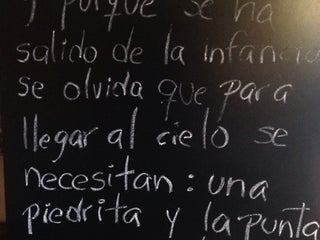 y porque se ha
salido de la infancia
se olvida que para
llegar al cielo se
necesitan: una
piedrita y la punta